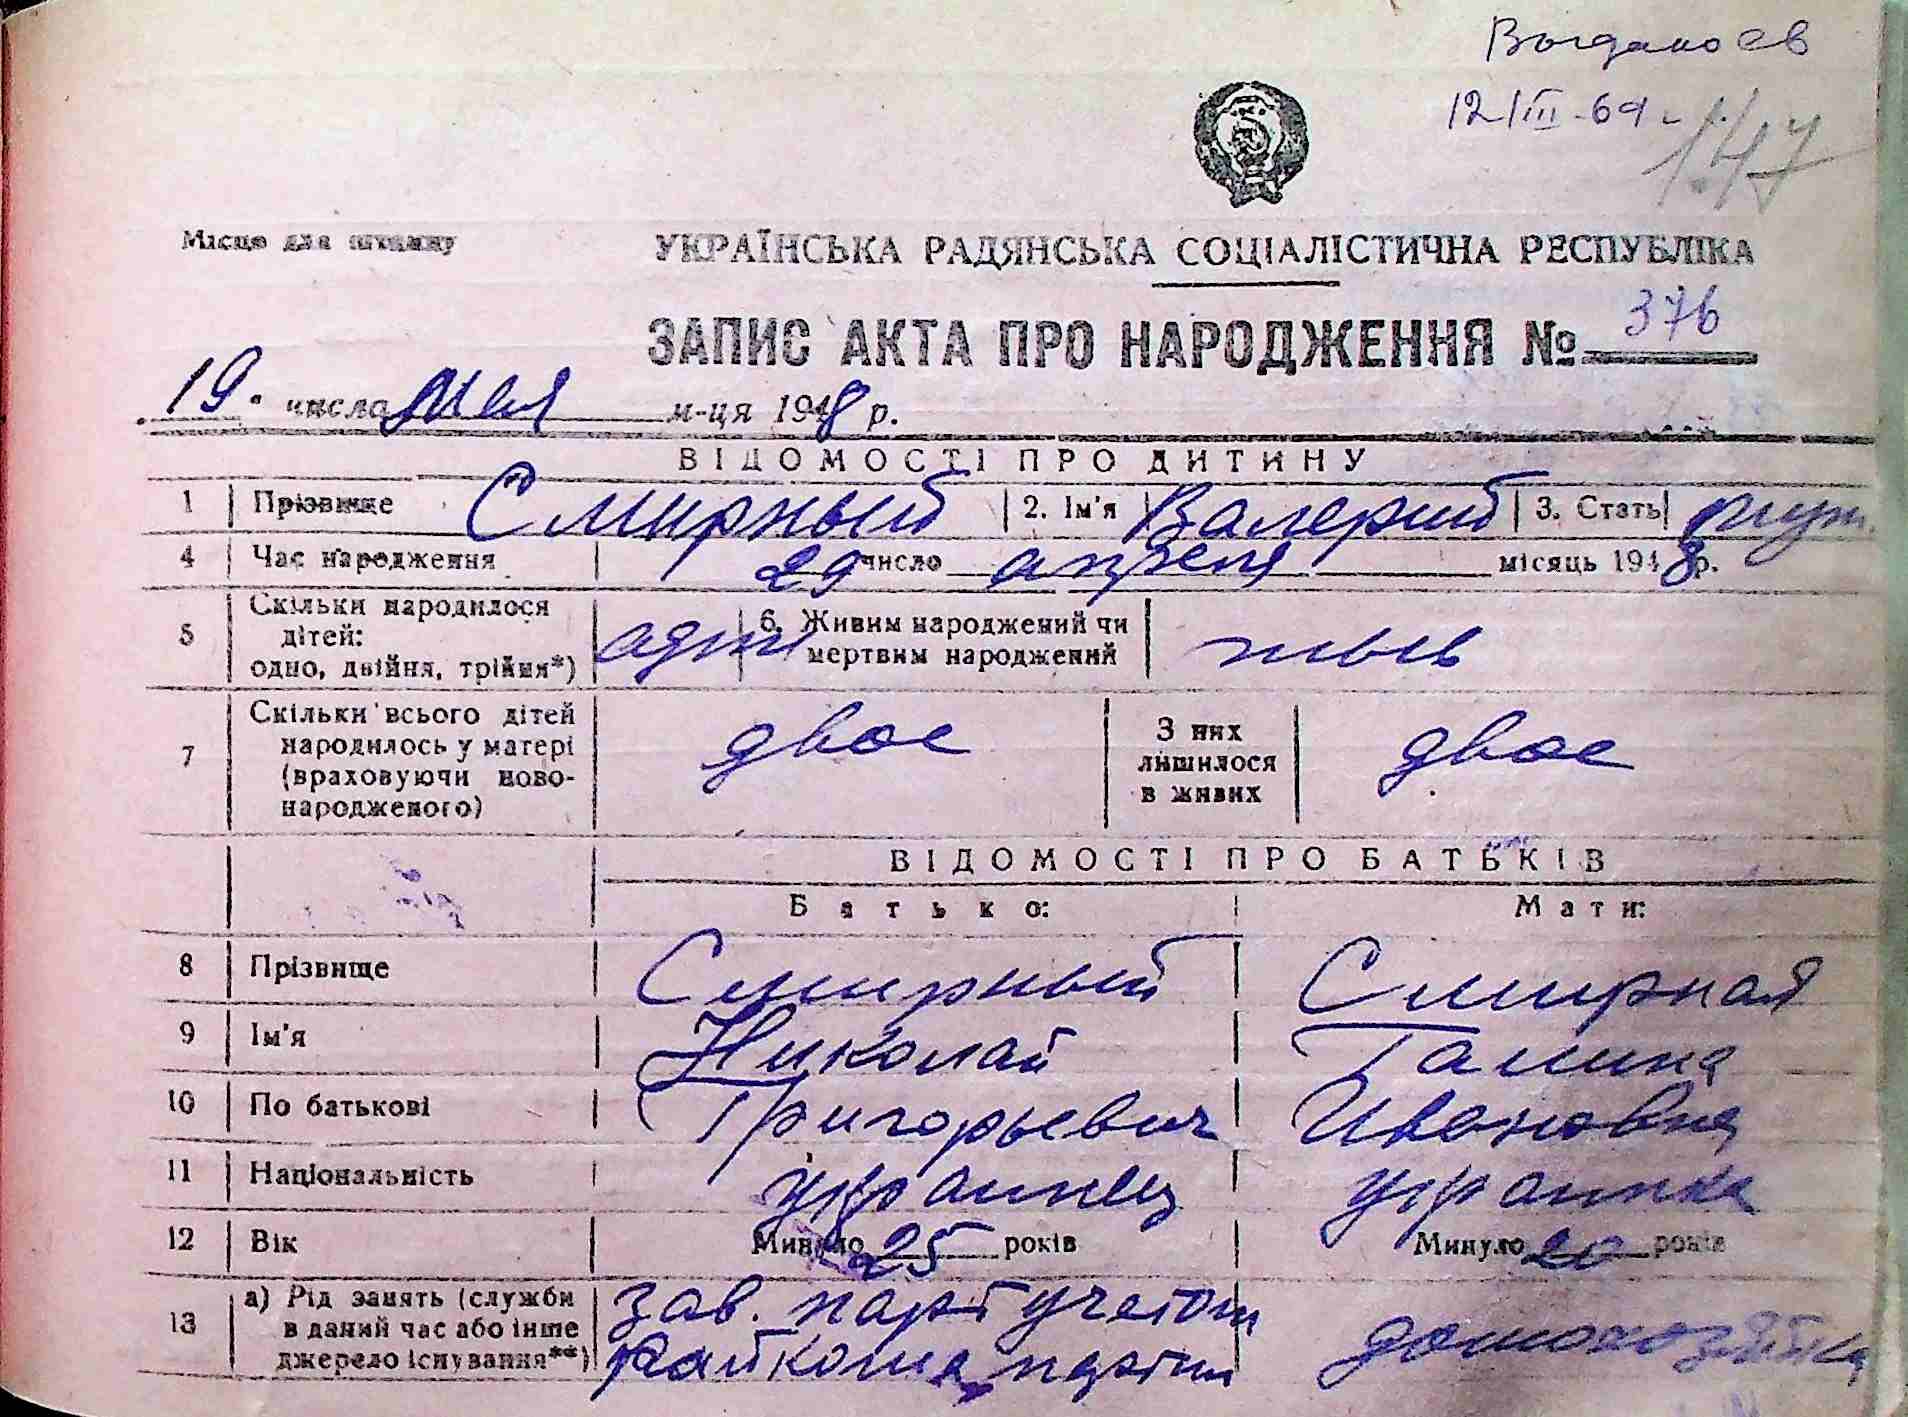 12/III-69
147
Місце для штампу
УКРАЇНСЬКА РАДЯНСЬКА СОЦІАЛІСТИЧНА РЕСПУБЛІКА
ЗАПИС АКТА ПРО НАРОДЖЕННЯ № 376
19. числа мая м-ця 1948 р.
ВІДОМОСТІ ПРО ДИТИНУ
1 Прізвище Смирный 2. Ім'я Валерий 3. Стать муж.
4 Час народження 29 число апреля місяць 1948 р.
5 Скільки народилося дітей: одно, двійня, трійня*) одни 6. Живим народжений чи мертвим народжений
7 Скільки всього дітей народилось у матері (враховуючи ново-народженого) двое З них лишилося в живих двое
ВІДОМОСТІ ПРО БАТЬКІВ
Батько: Мати:
8 Прізвище Смирный Смирная
9 Ім'я Николай Галина
10 По батькові Григорьевич Ивановна
11 Національність украинец украинка
12 Вік Минуло 25 років Минуло 20 років
13 а) Рід занять (служби в даний час або інше джерело існування**) зав. партучетом райкома партии домохозяйка